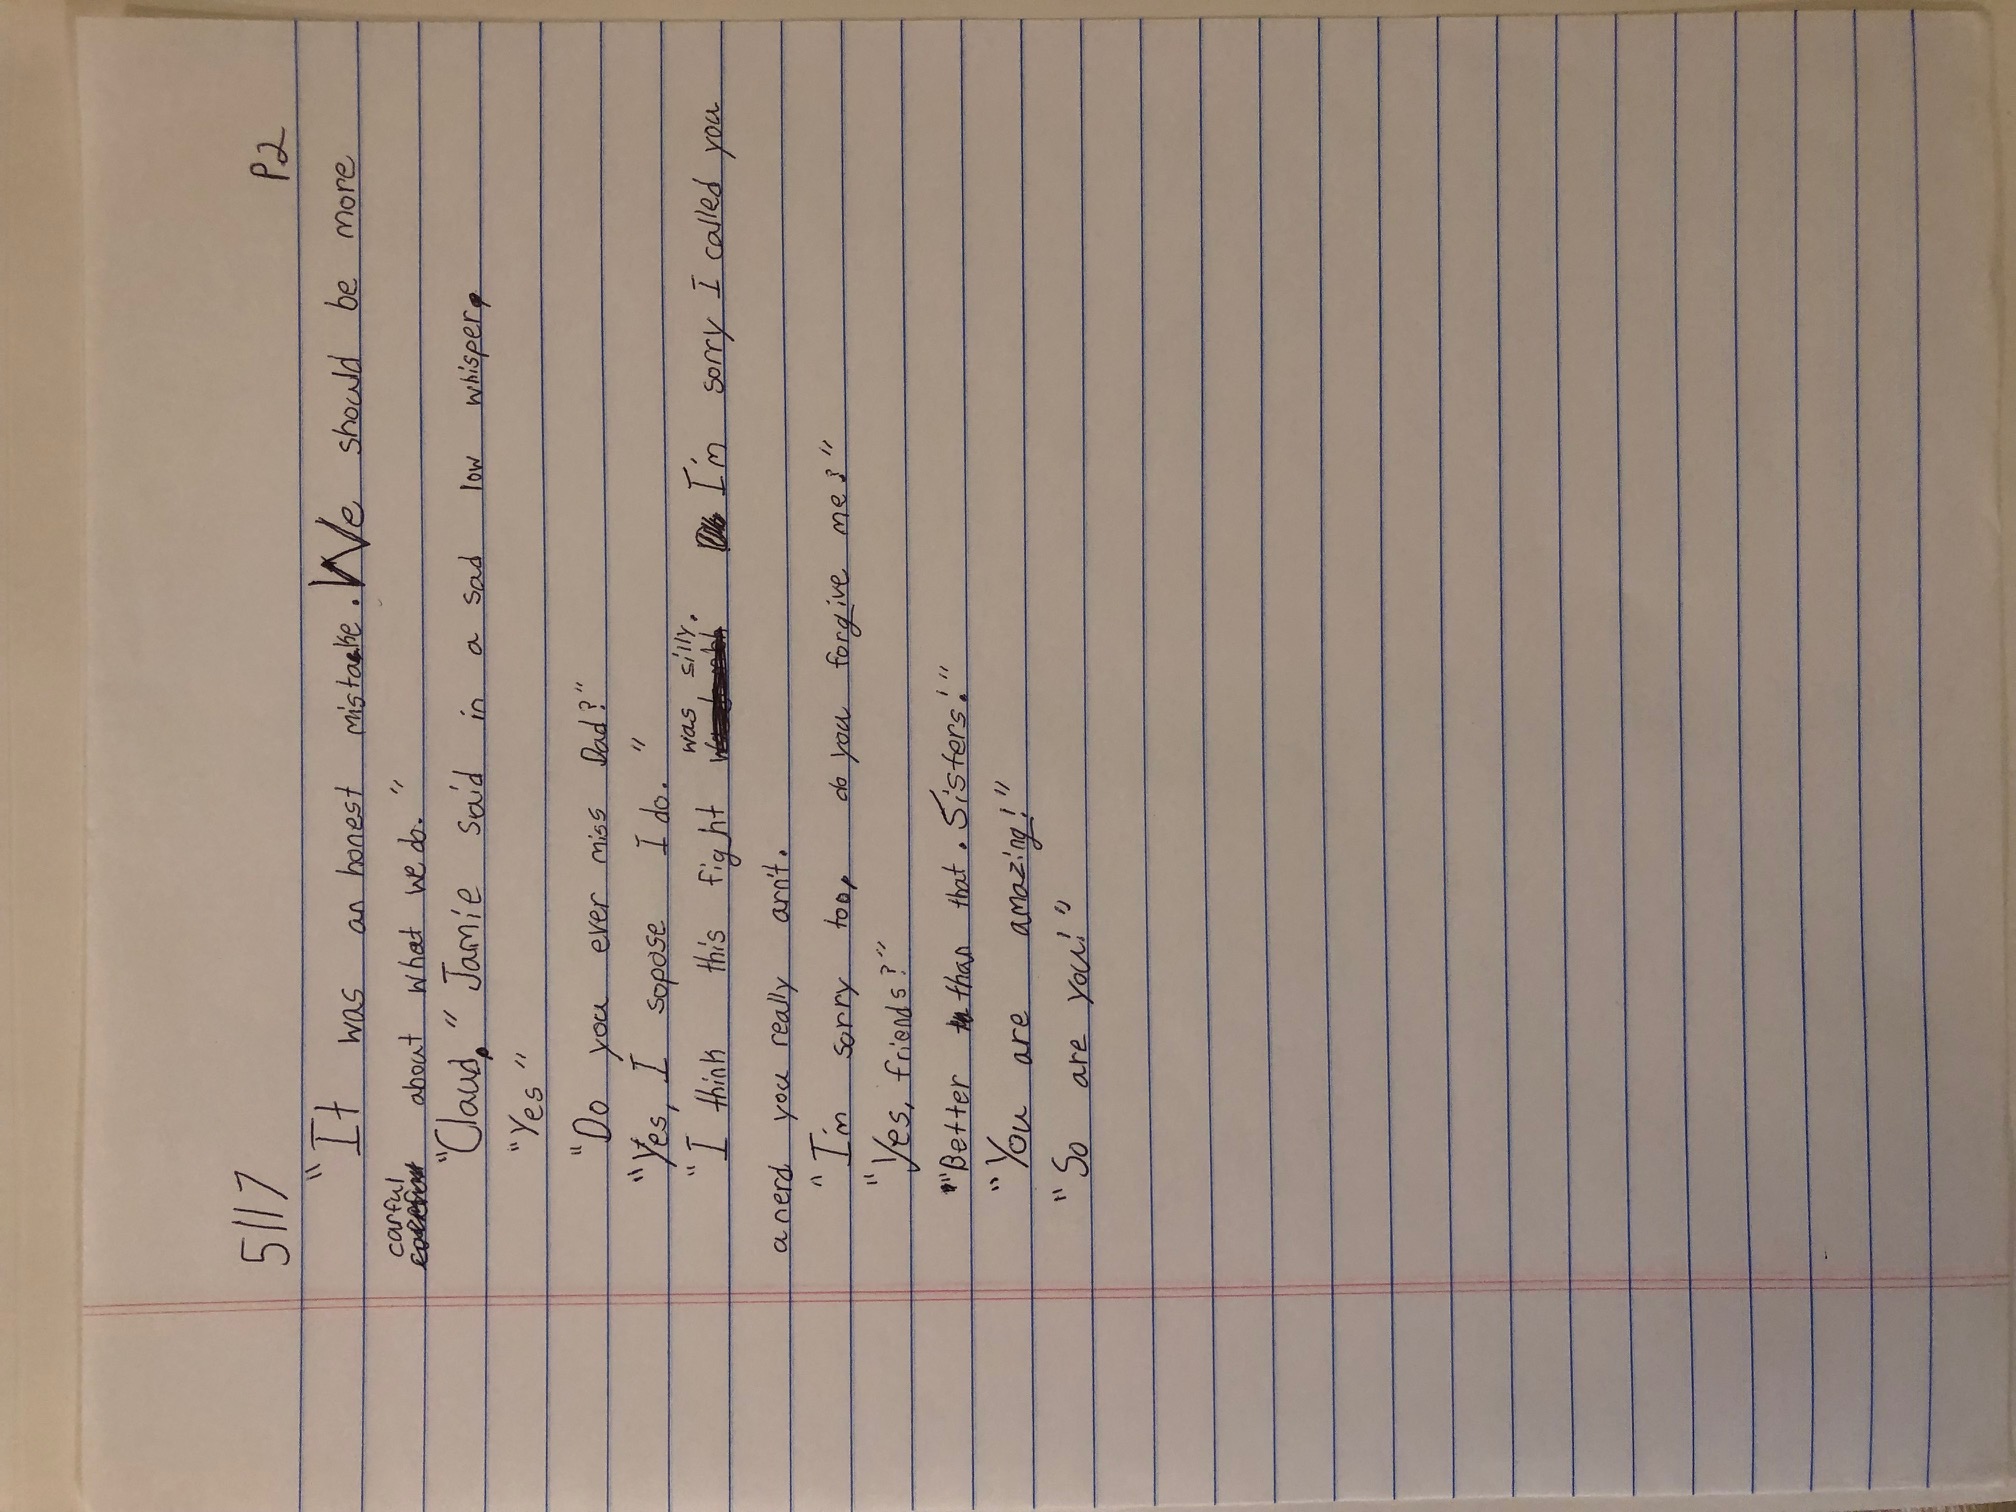 5117
P2
"It was an honest mistake. We should be more
carful about what we do."
"Claud," Jamie said in a sad low whisper,
"Yes"
"Do you ever miss Dad?"
"Yes, I sopose I do."
"I think this fight was silly. I'm sorry I called you
a nerd you really arn't.
"I'm sorry too, do you forgive me?"
"Yes, friends?"
"Better than that. Sisters!"
"You are amazing!"
"So are you!"